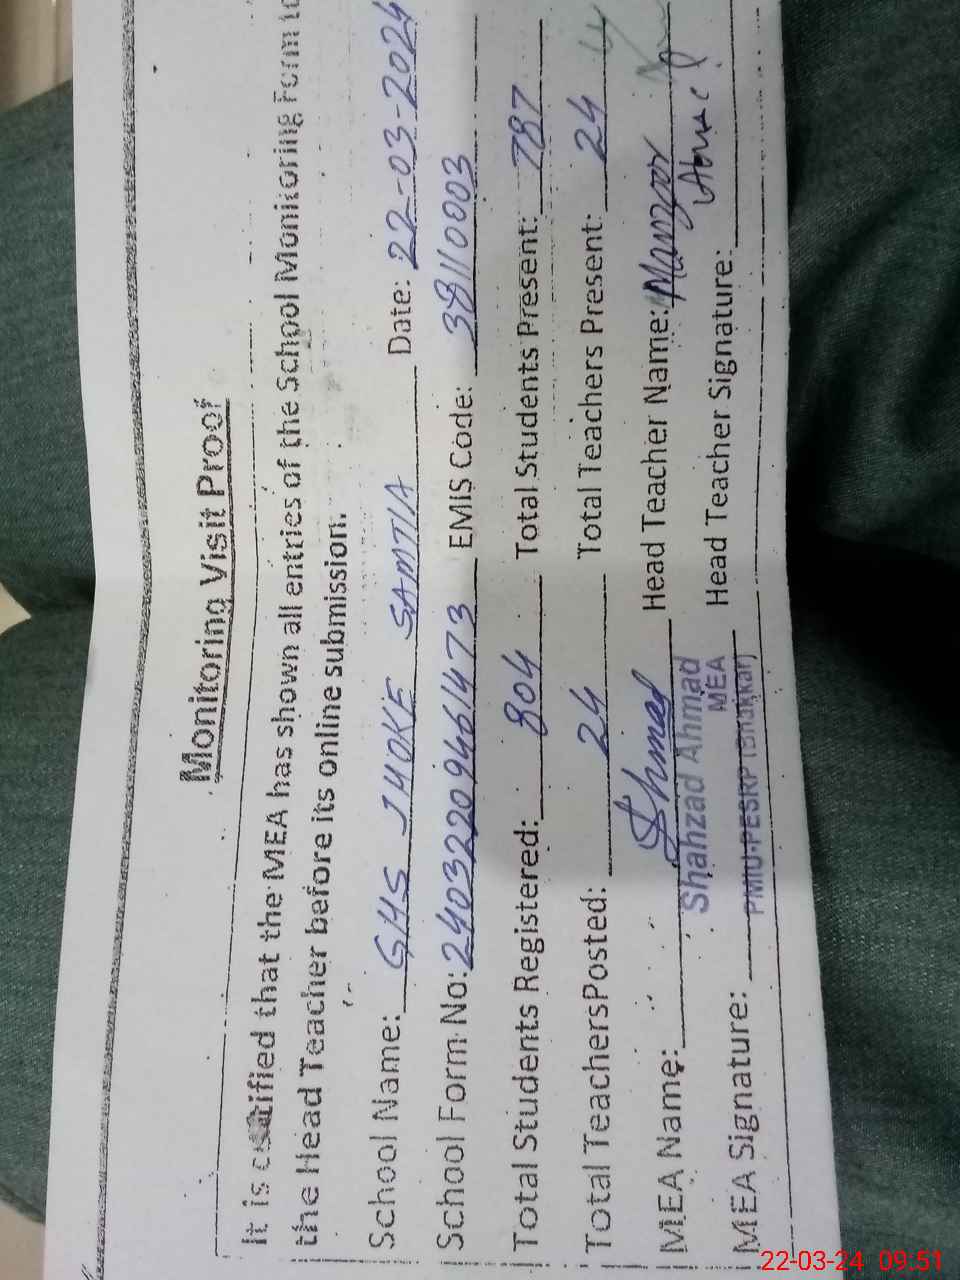 Monitoring Visit Proof
It is certified that the MEA has shown all entries of the School Monitoring Form to
the Head Teacher before its online submission.
School Name: GHS JHOKE SAMTIA Date: 22-03-2024
School Form No: 240322094661473 EMIS Code: 38110003
Total Students Registered: 804 Total Students Present: 787
Total Teachers Posted: 24 Total Teachers Present: 24
MEA Name: Ahmad Head Teacher Name: Manzoor
Shahzad Ahmad
MEA
MEA Signature: Head Teacher Signature:
PMIU-PESRP (Bhakkar)
22-03-24 09:51